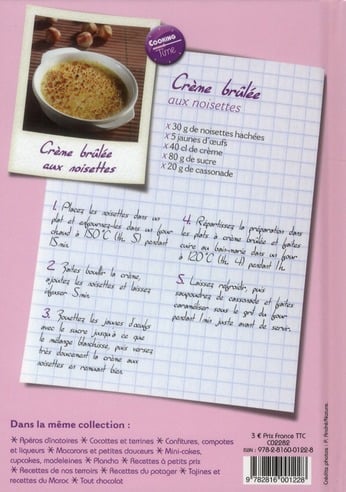 COOKING
Time
Crème brûlée
aux noisettes
Crème brûlée
aux noisettes
x 30 g de noisettes hachées
x 5 jaunes d'œufs
x 40 cl de crème
x 80 g de sucre
x 20 g de cassonade
1. Placez les noisettes dans un
plat et enfournez-les dans un four
chaud à 150°C (th. 5) pendant
15 min.
2. Faites bouillir la crème,
ajoutez les noisettes et laissez
infuser 5 min.
3. Fouettez les jaunes d'œufs
avec le sucre jusqu'à ce que
le mélange blanchisse, puis versez
très doucement la crème aux
noisettes en remuant bien.
4. Répartissez la préparation dans
les plats à crème brûlée et faites
cuire au bain-marie dans un four
à 120°C (th. 4) pendant 1h.
5. Laissez refroidir, puis
saupoudrez de cassonade et faites
caraméliser sous le gril du four
pendant 1 min juste avant de servir.
Dans la même collection :
* Apéros dînatoires * Cocottes et terrines * Confitures, compotes
et liqueurs * Macarons et petites douceurs * Mini-cakes,
cupcakes, madeleines * Plancha * Recettes à petits prix
* Recettes de nos terroirs * Recettes du potager * Tajines et
recettes du Maroc * Tout chocolat
3 € Prix France TTC
CO2282
ISBN : 978-2-8160-0122-8
9 782816 001228